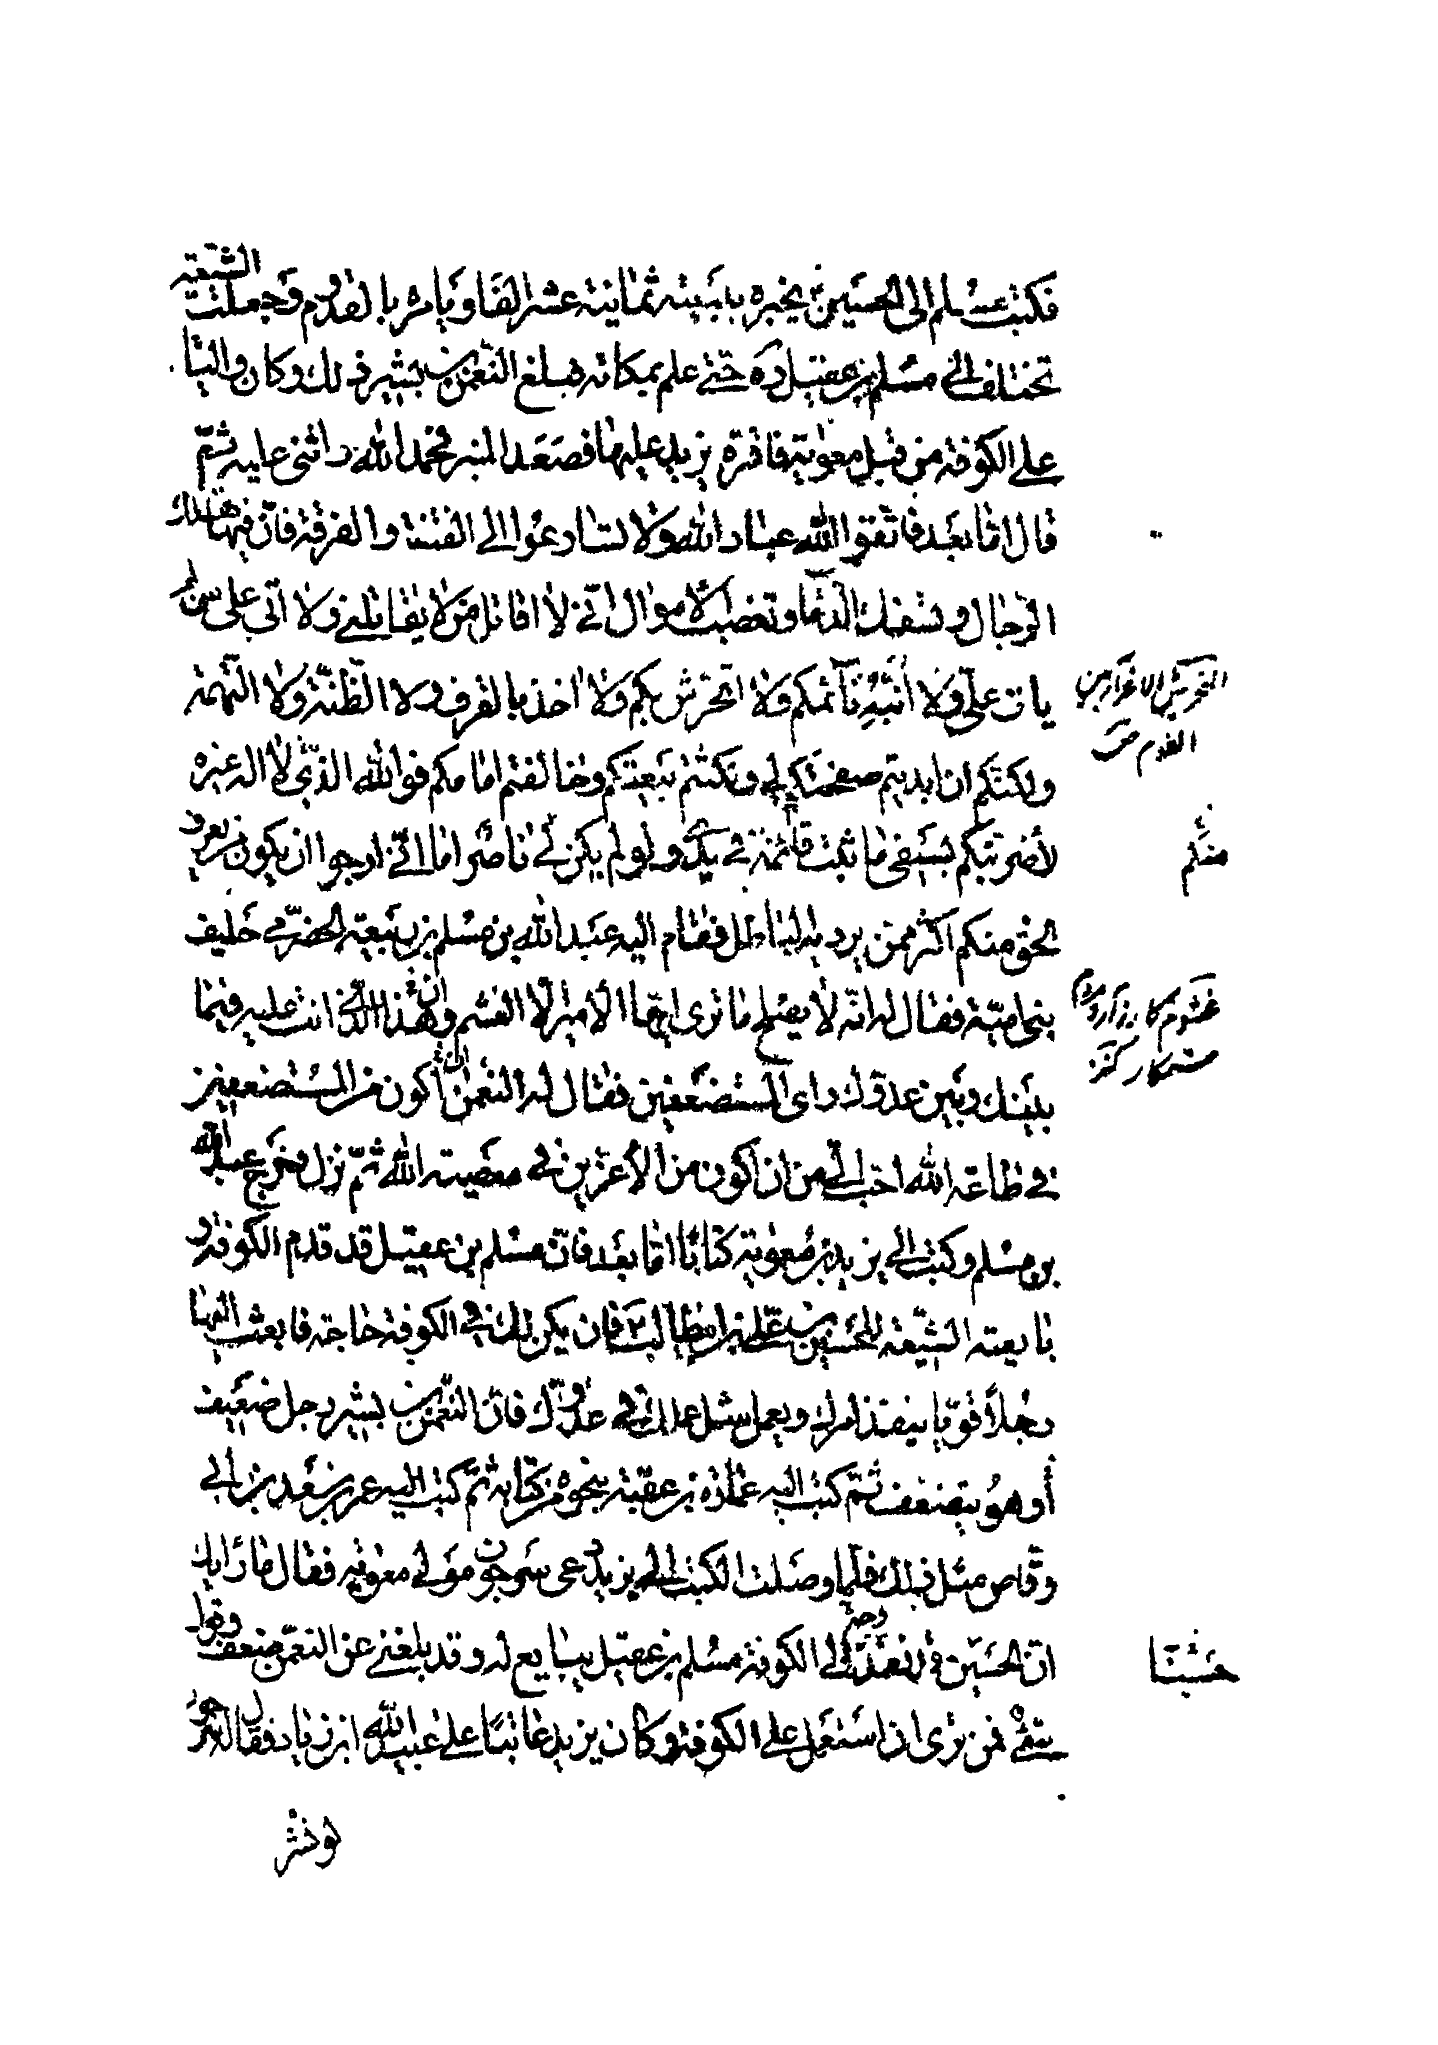 فكتب مسلم الى الحسين يخبره ببيعة ثمانية عشر الفا ويامره بالقدوم وجعلت الشيعة
تختلف الى مسلم بن عقيل ره حتى علم بمكانه فبلغ النعمن بن بشير ذلك وكان واليا
على الكوفة من قبل معوية فاقره يزيد عليها فصعد المنبر فحمد الله واثنى عليه ثم
قال اما بعد فاتقوا الله عباد الله ولا تسارعوا الى الفتنة والفرقة فان فيها تهلك
الرجال وتسفك الدماء وتغصب الاموال انى لا اقاتل من لا يقاتلنى ولا اتى على من لم
يات على ولا انبه نائمكم ولا اتحرش بكم ولا اخذ بالقرف ولا الظنة ولا التهمة
ولكنكم ان ابديتم صفحتكم لى ونكثتم بيعتكم وخالفتم امامكم فوالله الذى لا اله غيره
لأضربنكم بسيفى ما ثبت قائمه فى يدى ولو لم يكن لى ناصر اما انى ارجوا ان يكون من يعرف
الحق منكم اكثر ممن يرديه الباطل فقام اليه عبد الله بن مسلم بن ربيعة الحضرمى حليف
بنى امية فقال له انه لا يصلح ما ترى ايها الامير الا الغشم وان هذا الذى انت عليه فيما
بينك وبين عدوك راى المستضعفين فقال له النعمن ان اكون من المستضعفين
فى طاعة الله احب الى من ان اكون من الأعزين فى معصية الله ثم نزل وخرج عبد الله
بن مسلم وكتب الى يزيد بن معوية كتابا اما بعد فان مسلم بن عقيل قد قدم الكوفة و
بايعته الشيعة للحسين بن على بن ابيطالب فان يكن لك فى الكوفة حاجة فابعث اليها
رجلا قويا ينفذ امرك ويعمل مثل عملك فى عدوك فان النعمن بن بشير رجل ضعيف
أو هو يتضعف ثم كتب اليه عمارة بن عقبة بنحو من كتابه ثم كتب اليه عمر بن سعد بن ابى
وقاص مثل ذلك فلما وصلت الكتب الى يزيد دعى سرجون مولى معوية فقال ما رايك
ان الحسين قد نفذ الى الكوفة مسلم بن عقيل يبايع له وقد بلغنى عن النعمن ضعف وقول
سيئ فمن ترى ان استعمل على الكوفة وكان يزيد عاتبا على عبيد الله ابن زياد فقال له سرجون
لو نشر
التحرش الاغراء بين
القوم ص
منكم